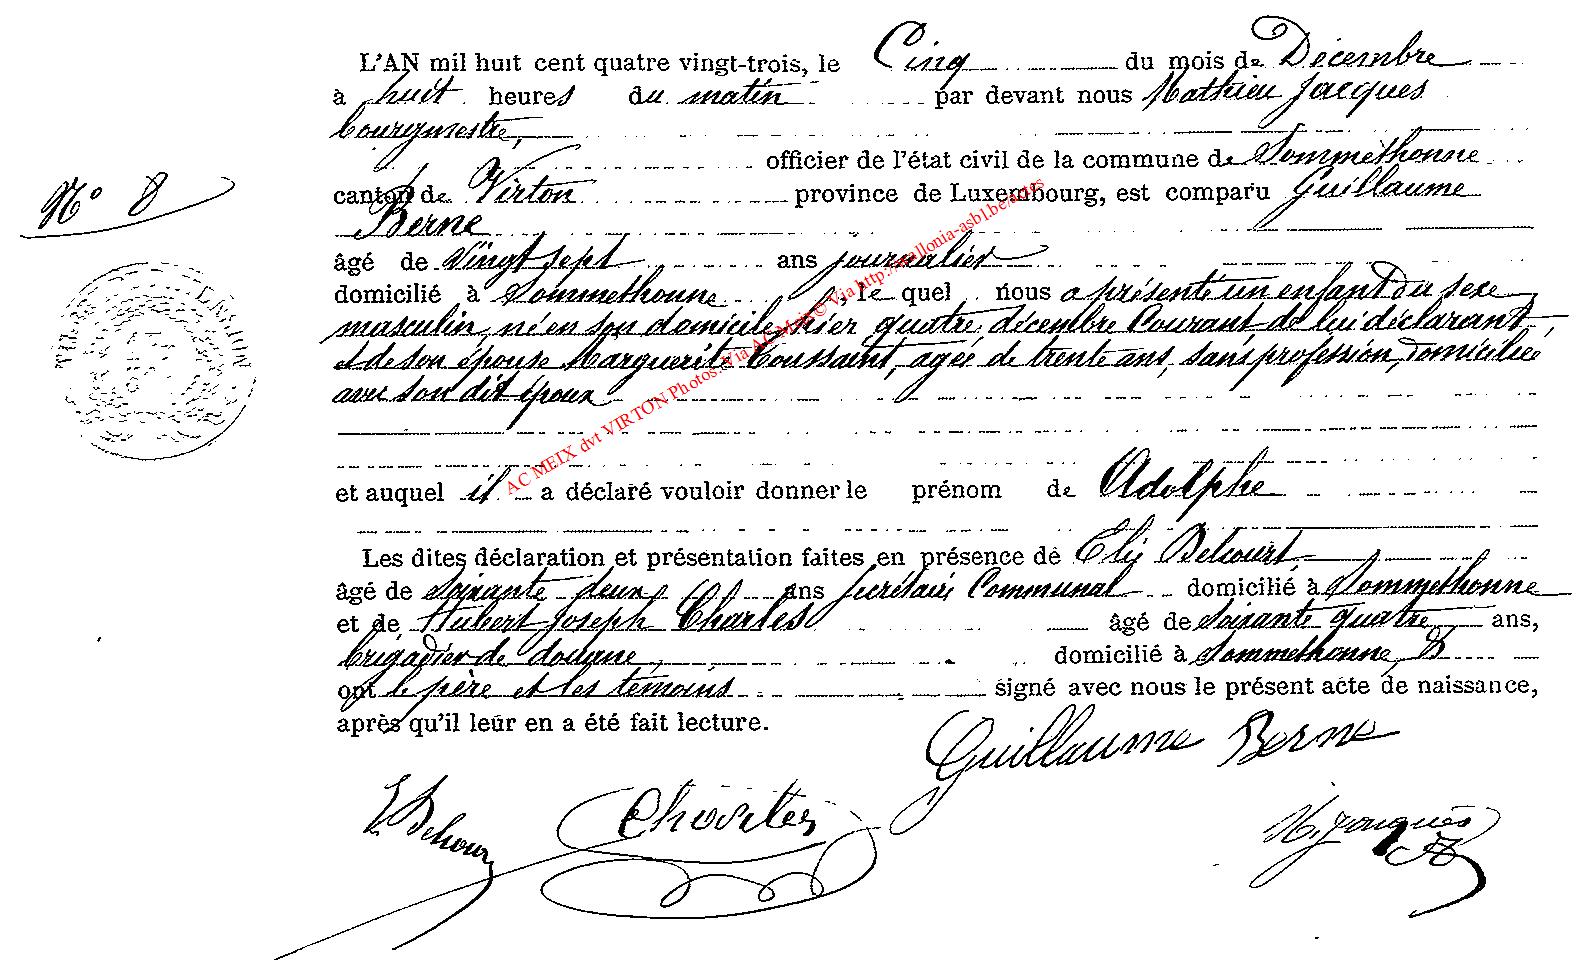 L'AN mil huit cent quatre vingt-trois, le Cinq du mois de Décembre
à huit heures du matin par devant nous Mathieu Jacques
bourgmestre,
officier de l'état civil de la commune de Sommethonne
N° 8
canton de Virton province de Luxembourg, est comparu Guillaume
Berne
âgé de vingt sept ans journalier
domicilié à Sommethonne, le quel nous a présenté un enfant du sexe
masculin, né en son domicile, hier quatre, décembre Courant, de lui déclarant,
et de son épouse Marguerite Toussaint, agée de trente ans, sans profession, domiciliée
avec son dit époux
et auquel il a déclaré vouloir donner le prénom de Adolphe
Les dites déclaration et présentation faites en présence de Elie Delcourt,
âgé de soixante deux ans Secrétaire Communal domicilié à Sommethonne
et de Hubert Joseph Charles âgé de soixante quatre ans,
brigadier de douane domicilié à Sommethonne, &
ont le père et les témoins signé avec nous le présent acte de naissance,
après qu'il leur en a été fait lecture.
Guillaume Berne
Charles
M. Jacques
AC MEIX dvt VIRTON Photos: Via AC Meix© Via http://wallonia-asbl.be/actes